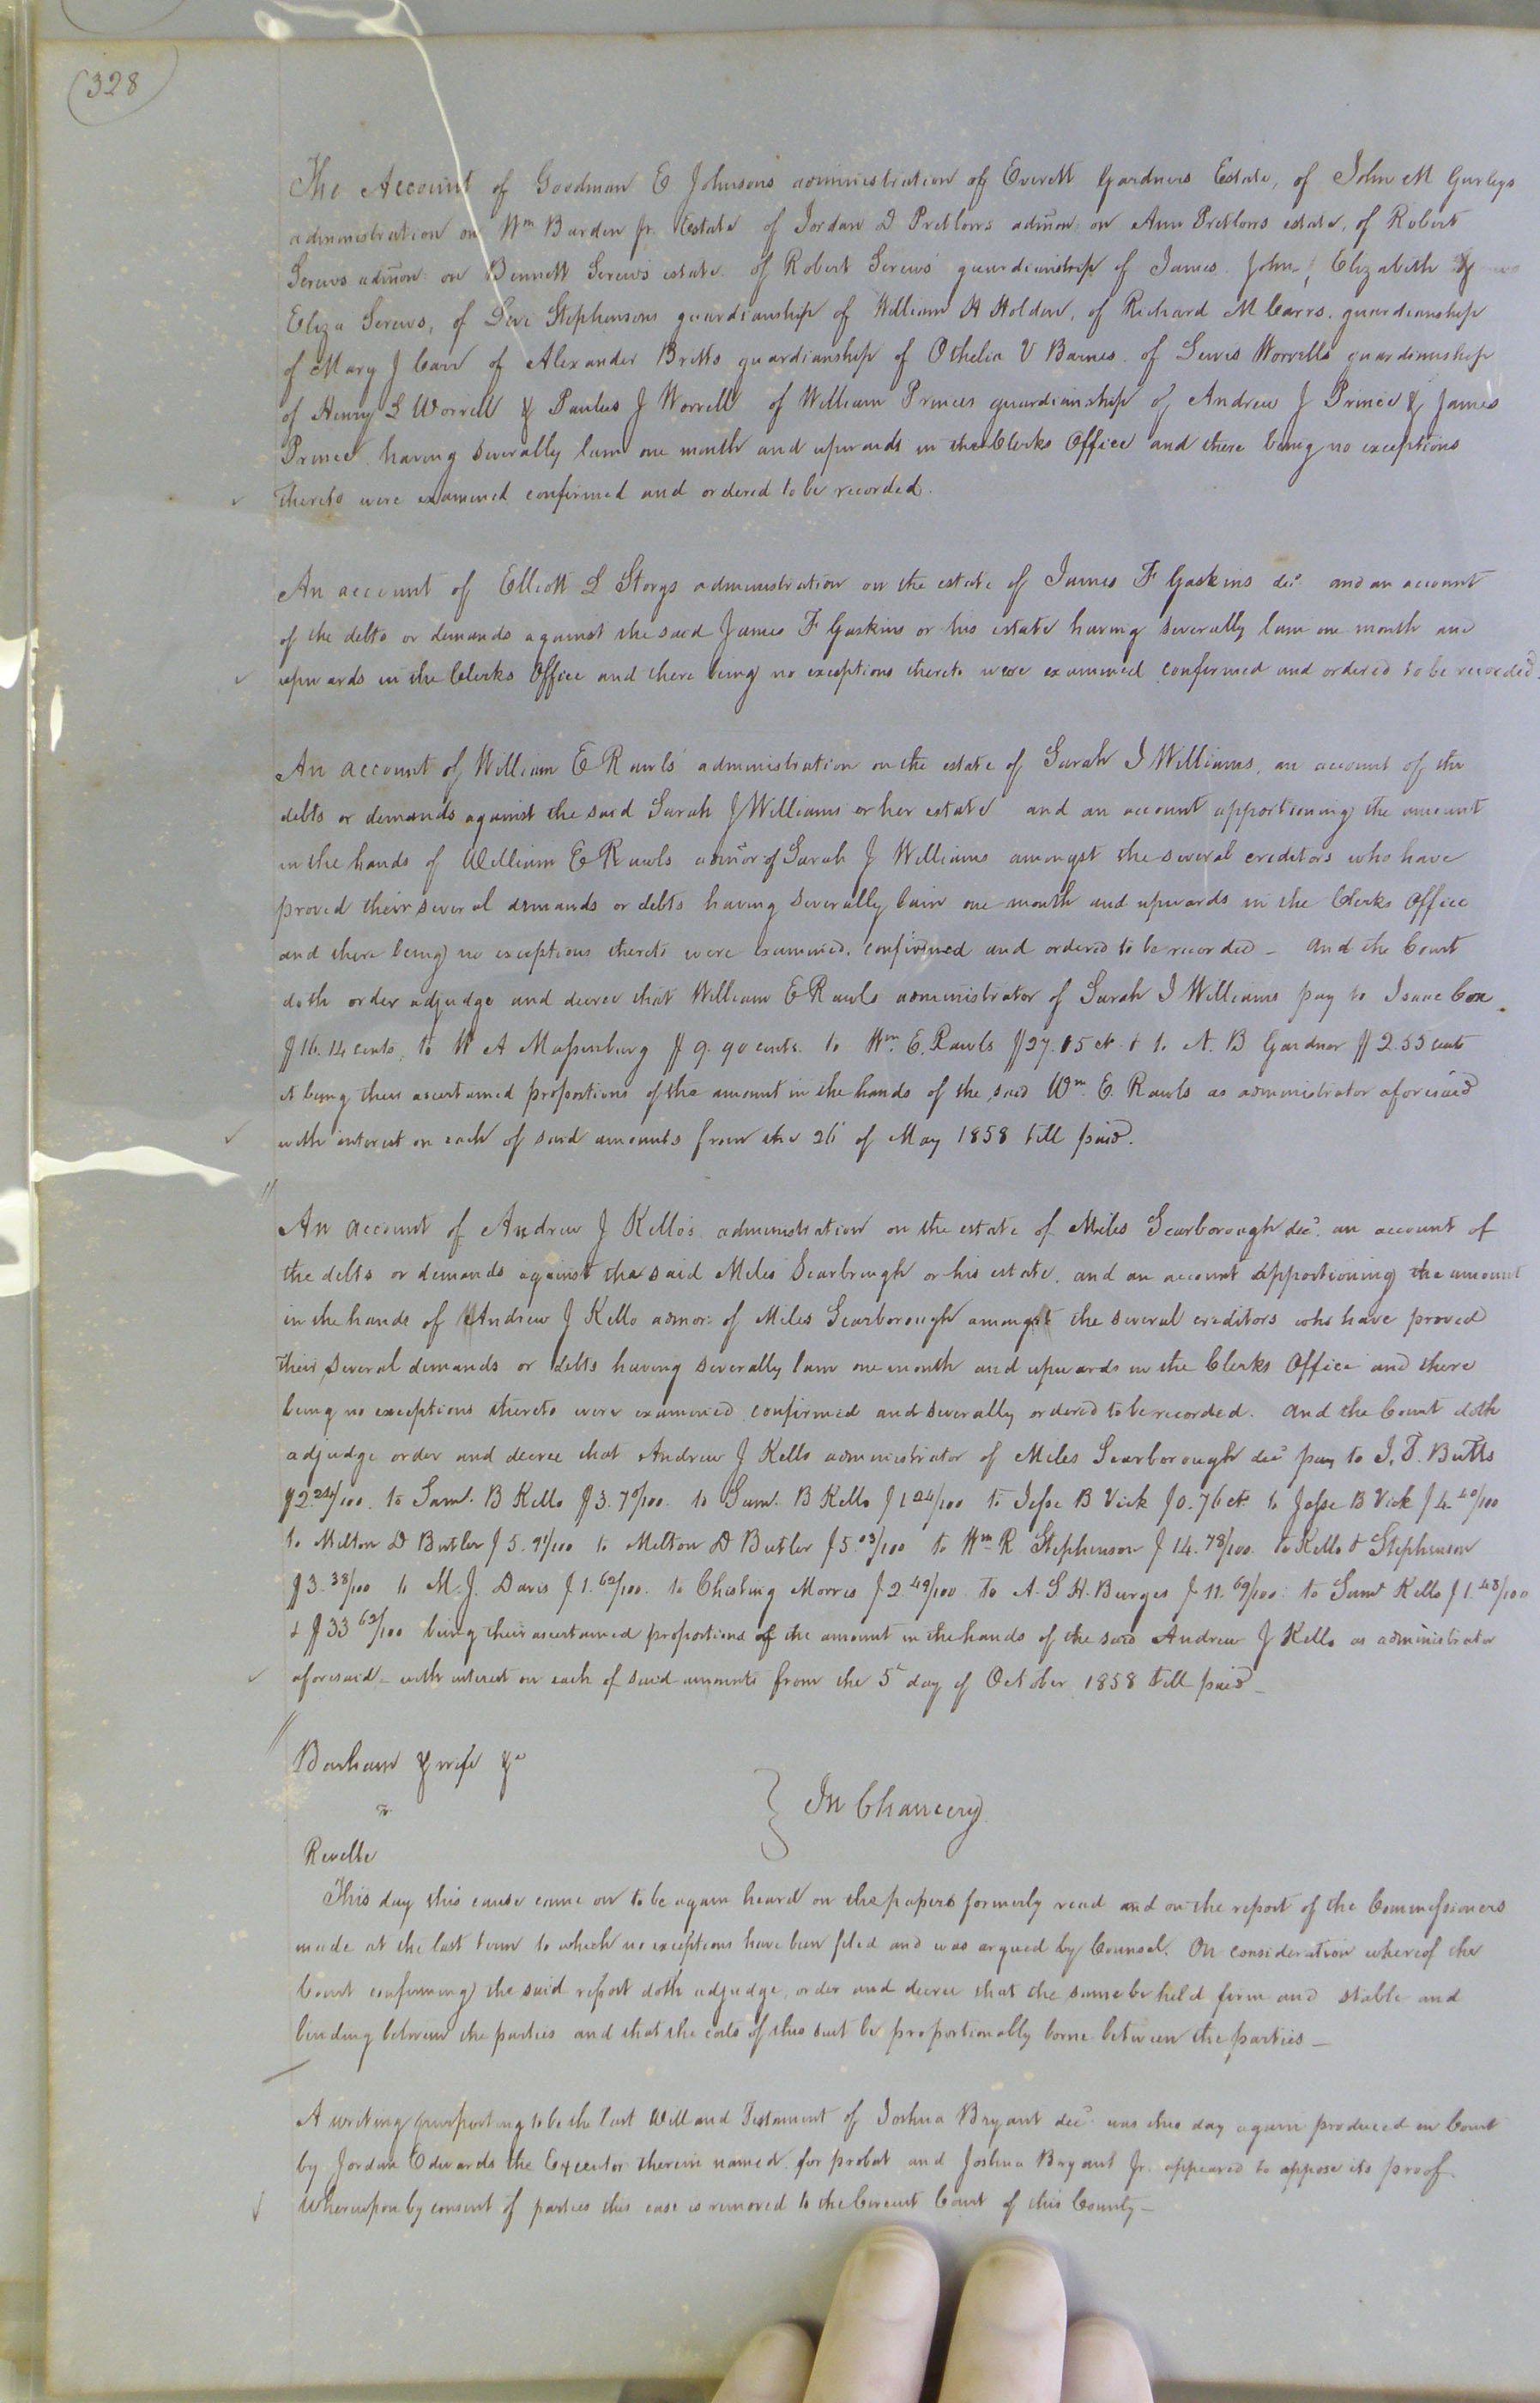 (328)
The Account of Goodman E Johnsons administration of Everett Gardners Estate, of John M Gurleys
administration on Wm Barden Jr. Estate of Jordan D Pretlows admon: on Ann Pretlows estate, of Robert
Screws admon: on Bennett Screws estate. of Robert Screws' guardianship of James. John, Elizabeth &
Eliza Screws, of Levi Stephensons guardianship of William H Holden, of Richard M Carrs. guardianship
of Mary J Carr of Alexander Britts guardianship of Othelia V Barnes. of Lewis Worrells guardianship
of Henry L Worrell & Paulus J Worrell of William Princes guardianship of Andrew J Prince & James
Prince having severally lain one month and upwards in the Clerks Office and there being no exceptions
thereto were examined confirmed and ordered to be recorded.
An account of Elliott L Storys administration on the estate of James F Gaskins decd. and an account
of the debts or demands against the said James F Gaskins or his estate having severally lain one month and
upwards in the Clerks Office and there being no exceptions thereto were examined confirmed and ordered to be recorded.
An account of William E Rawls' administration on the estate of Sarah J Williams, an account of the
debts or demands against the said Sarah J Williams or her estate and an account apportioning the amount
in the hands of William E Rawls admor of Sarah J Williams amongst the several creditors who have
proved their several demands or debts having severally lain one month and upwards in the Clerks Office
and there being no exceptions thereto were examined. confirmed and ordered to be recorded - And the Court
doth order adjudge and decree that William E Rawls administrator of Sarah J Williams pay to Isaac Cox
$16.14 cents, to W A Massenburg $9.90 cents. to Wm. E. Rawls $27.15 ct. & to N. B Gardner $2.55 cents
it being their ascertained proportions of the amount in the hands of the said Wm. E. Rawls as administrator aforesaid
with interest on each of said amounts from the 26 of May 1858 till paid.
An account of Andrew J Kello's administration on the estate of Miles Scarborough decd. an account of
the debts or demands against the said Miles Scarbrough or his estate, and an account apportioning the amount
in the hands of Andrew J Kello admor: of Miles Scarborough amongst the several creditors who have proved
their several demands or debts having severally lain one month and upwards in the Clerks Office and there
being no exceptions thereto were examined confirmed and severally ordered to be recorded. And the Court doth
adjudge order and decree that Andrew J Kello administrator of Miles Scarborough decd pay to J. T. Butts
$2.24/100. to Saml. B Kello $3.70/100. to Saml. B Kello $1 24/100 to Jesse B Vick $0.76 ct to Jesse B Vick $4.40/100
to Milton D Butler $5.91/100 to Milton D Butler $5.03/100 to Wm R Stephenson $14.78/100. to Kello & Stephenson
$3.38/100 to M. J. Davis $1.62/100. to Chislieng Morris $2.49/100 to A. S. H. Burges $11.69/100: to Saml Kello $1.48/100
& $33 62/100 being their ascertained proportions of the amount in the hands of the said Andrew J Kello as administrator
aforesaid - with interest on each of said amounts from the 5th day of October 1858 till paid -
Barham & wife &c
vs
Revelle
} In Chancery
This day this cause came on to be again heard on the papers formerly read and on the report of the Commissioners
made at the last term to which no exceptions have been filed and was argued by Counsel. On consideration whereof the
Court confirming the said report doth adjudge, order and decree that the same be held firm and stable and
binding between the parties and that the costs of this suit be proportionably borne between the parties -
A writing purporting to be the last Will and Testament of Joshua Bryant decd. was this day again produced in Court
by Jordan Edwards the Executor therein named for probat and Joshua Bryant Jr. appeared to oppose its proof.
Whereupon by consent of parties this case is removed to the Circuit Court of this County -